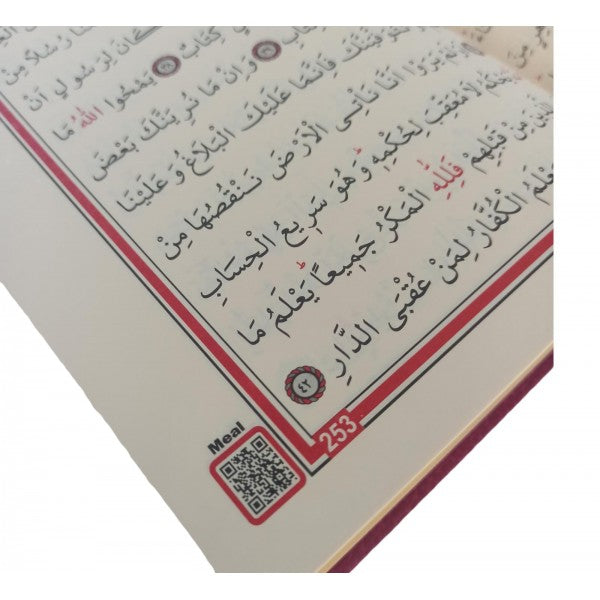 رُسُلًا مِنْ
كَانَ لِرَسُولٍ اَنْ
كِتَابٌ ﴿٣٨﴾ يَمْحُوا اللّٰهُ مَا
﴿٣٩﴾ وَاِنْ مَا نُرِيَنَّكَ بَعْضَ
فَاِنَّمَا عَلَيْكَ الْبَلَاغُ وَعَلَيْنَا
يَرَوْا اَنَّا نَأْتِي الْاَرْضَ نَنْقُصُهَا مِنْ
لَا مُعَقِّبَ لِحُكْمِهِ وَهُوَ سَرِيعُ الْحِسَابِ
مِنْ قَبْلِهِمْ فَلِلّٰهِ الْمَكْرُ جَمِيعًا يَعْلَمُ مَا
الْكُفَّارُ لِمَنْ عُقْبَى الدَّارِ ﴿٤٢﴾
253
Meal